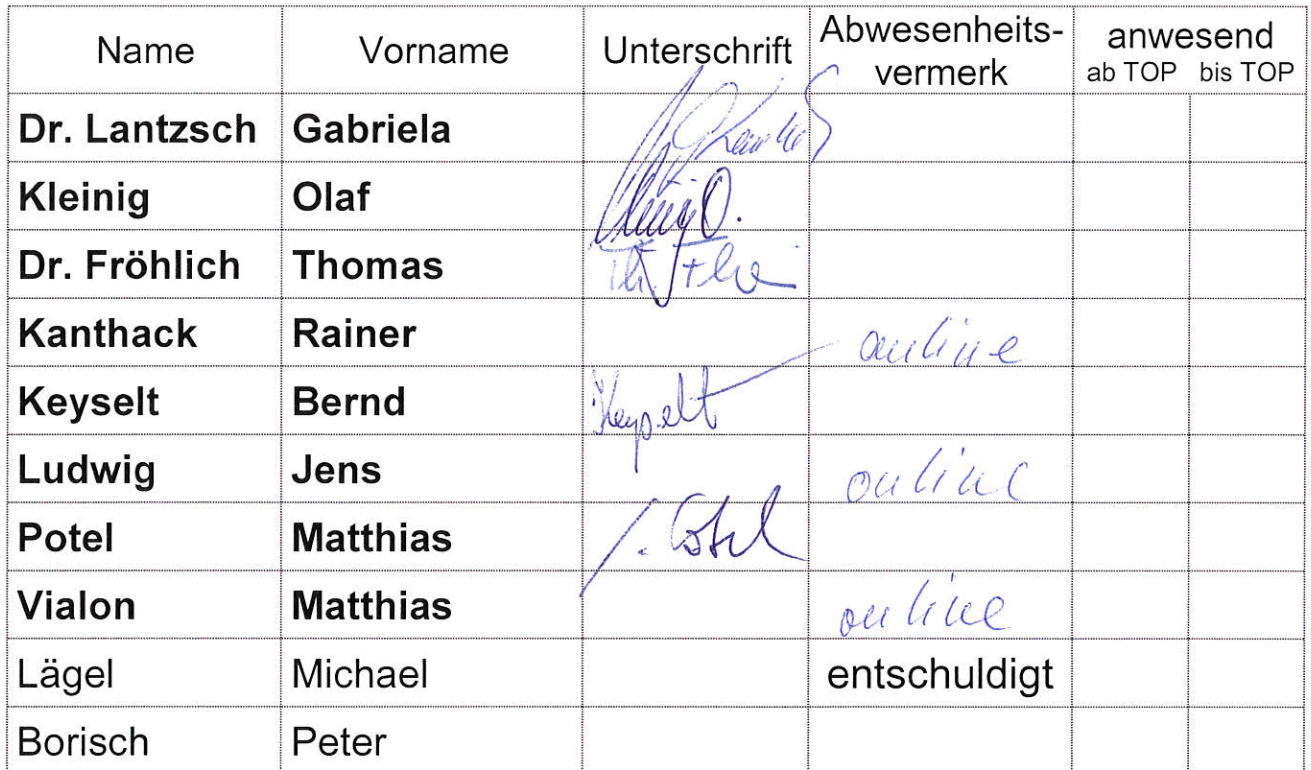 Name Vorname Unterschrift Abwesenheits-vermerk anwesend ab TOP bis TOP
Dr. Lantzsch Gabriela
Kleinig Olaf
Dr. Fröhlich Thomas
Kanthack Rainer online
Keyselt Bernd Keyselt
Ludwig Jens online
Potel Matthias
Vialon Matthias online
Lägel Michael entschuldigt
Borisch Peter